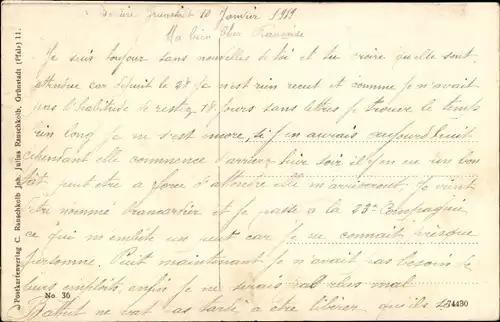 Grünstadt 10 Janvier 1919
Ma bien cher Françoise
Je suis toujour sans nouvelles de toi et tu croire qu'elle sont
attendue car depuit le 28 je n'est rien recut et comme je n'avait
pas l'habitude de restez 18 jours sans lettres je trouve le temps
bien long je ne s'est encore, si j'en aurais aujourd'huit
cependant elle commence a arrivez hier soir il y en eu un bon
peut etre a force d'attendre elle m'arriveront. Je vient
d'etre nommé brancardier et je passe a la 23e Compagnie
ce qui m'embête un peut car je ne connait presque
personne. Puit maintenant je n'avait pas besoin de
leurs emploit, enfin je ne serais pas plus mal
Baltut ne vat pas tardé a etre libérer qu'ils
Postkartenverlag C. Rauschkolb Joh. Julius Rauschkolb, Grünstadt (Pfalz) 11.
No. 36
74430